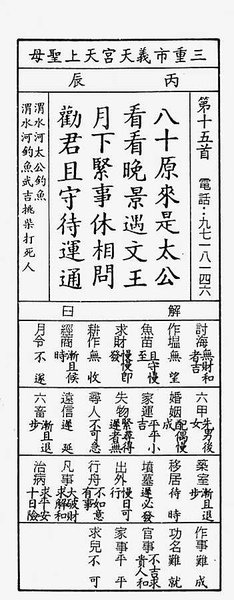 三重市義天宮天上聖母
丙辰
第十五首 電話：九七一八一四六
八十原來是太公
看看晚景遇文王
月下緊事休相問
勸君且守待運通
渭水河太公釣魚
渭水河釣魚武吉挑柴打死人
解曰
討海無財和者吉
作塭無望
魚苗且守慢至
求財慢慢即發
耕作無收
經商漸且候時
月令不遂
六甲先男後女
婚姻配偶慢成
家運平平小吉
失物緊尋者遲無
尋人不可急
遠信遲延
六畜漸且退步
築室漸且退步
移居待時
墳墓遲必發
出外慢日可
行舟不如意有事
凡事大破財求解和
治病求平安十日險
作事難成
功名難就
官事不吉求貴人和
家事平平
求兒不可